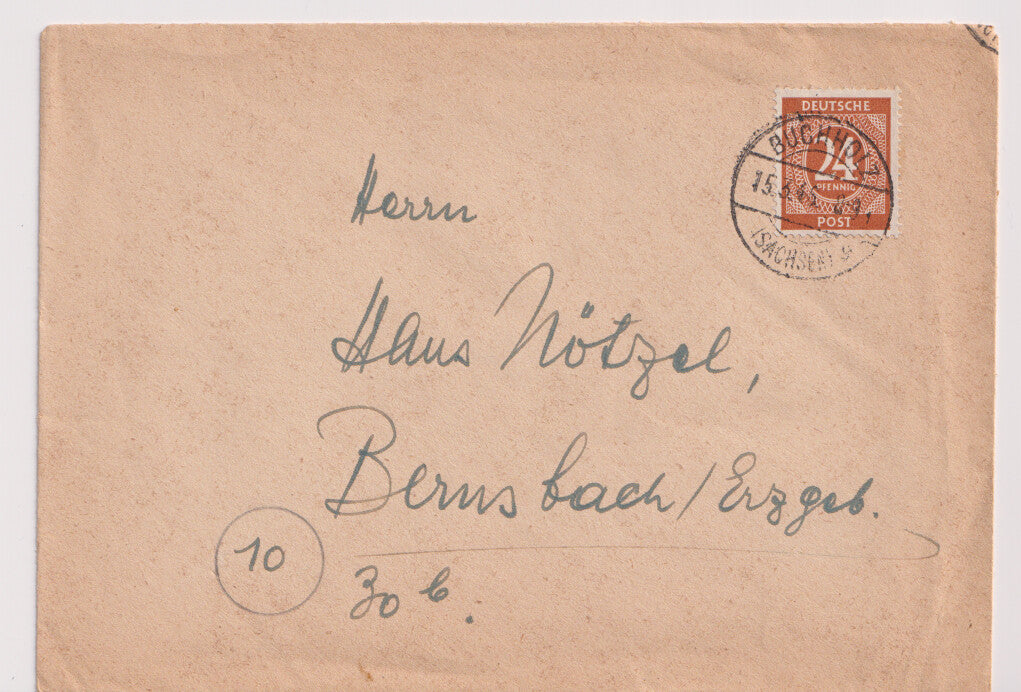 DEUTSCHE
24
PFENNIG
POST
BUCHHOLZ
(SACHSEN)
Herrn
Hans Nötzel,
Bernsbach/Erzgeb.
10
30 b.